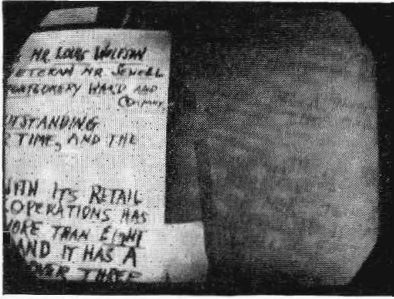 MR LOUIS WOLFSON
VETERAN MR SEWELL
MONTGOMERY WARD AND
Company
OUTSTANDING
R TIME, AND THE
WITH ITS RETAIL
OPERATIONS HAS
MORE THAN EIGHT
AND IT HAS A
OVER THREE